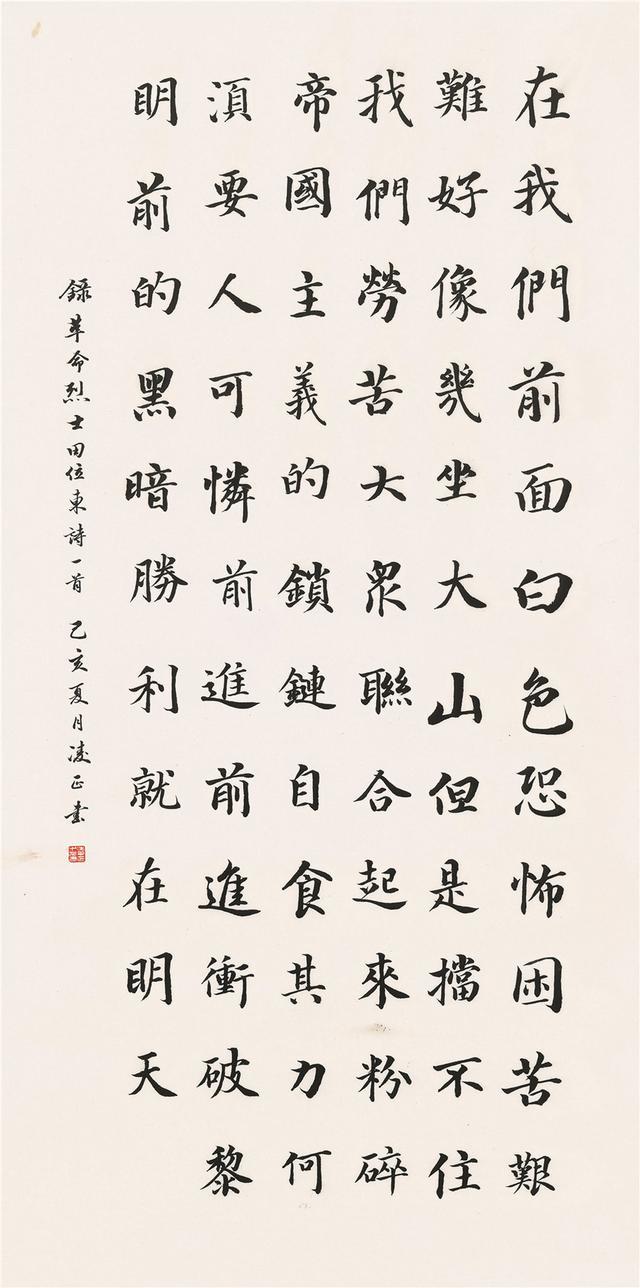 在我們前面白色恐怖困苦艱
難好像幾坐大山但是擋不住
我們勞苦大眾聯合起來粉碎
帝國主義的鎖鏈自食其力何
須要人可憐前進前進衝破黎
明前的黑暗勝利就在明天
錄革命烈士田位東詩一首 乙亥夏月凌正書